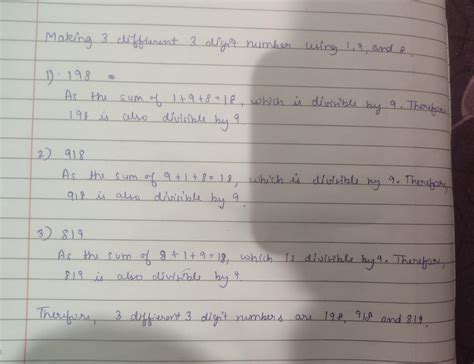 Making 3 different 3 digit number using 1, 9, and 8.
1) 198
As the sum of 1+9+8=18, which is divisible by 9. Therefore,
198 is also divisible by 9
2) 918
As the sum of 9+1+8=18, which is divisible by 9. Therefore,
918 is also divisible by 9.
3) 819
As the sum of 8+1+9=18, which is divisible by 9. Therefore,
819 is also divisible by 9.
Therefore, 3 different 3 digit numbers are 198, 918 and 819.